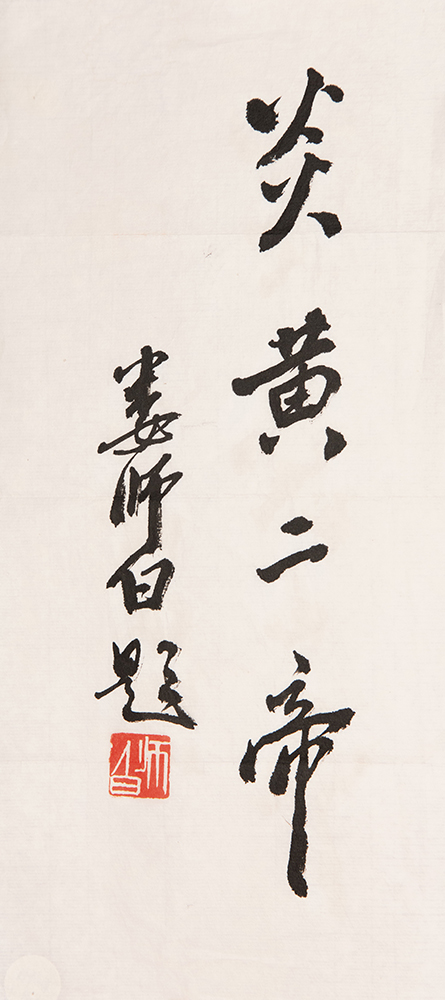 炎黄二帝
娄师白题
师白